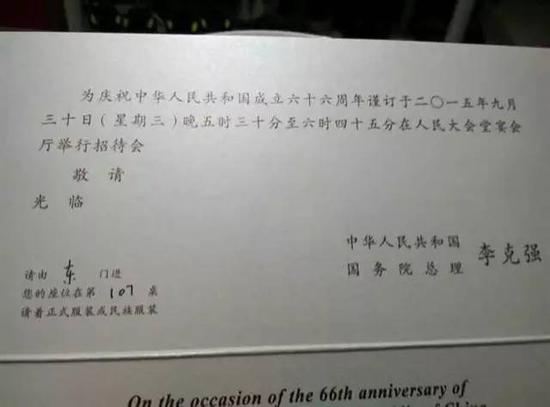 为庆祝中华人民共和国成立六十六周年谨订于二〇一五年九月
三十日(星期三)晚五时三十分至六时四十五分在人民大会堂宴会
厅举行招待会
敬请
光临
中华人民共和国
国务院总理 李克强
请由 东 门进
您的座位在第 107 桌
请着正式服装或民族服装
On the occasion of the 66th anniversary of
of China